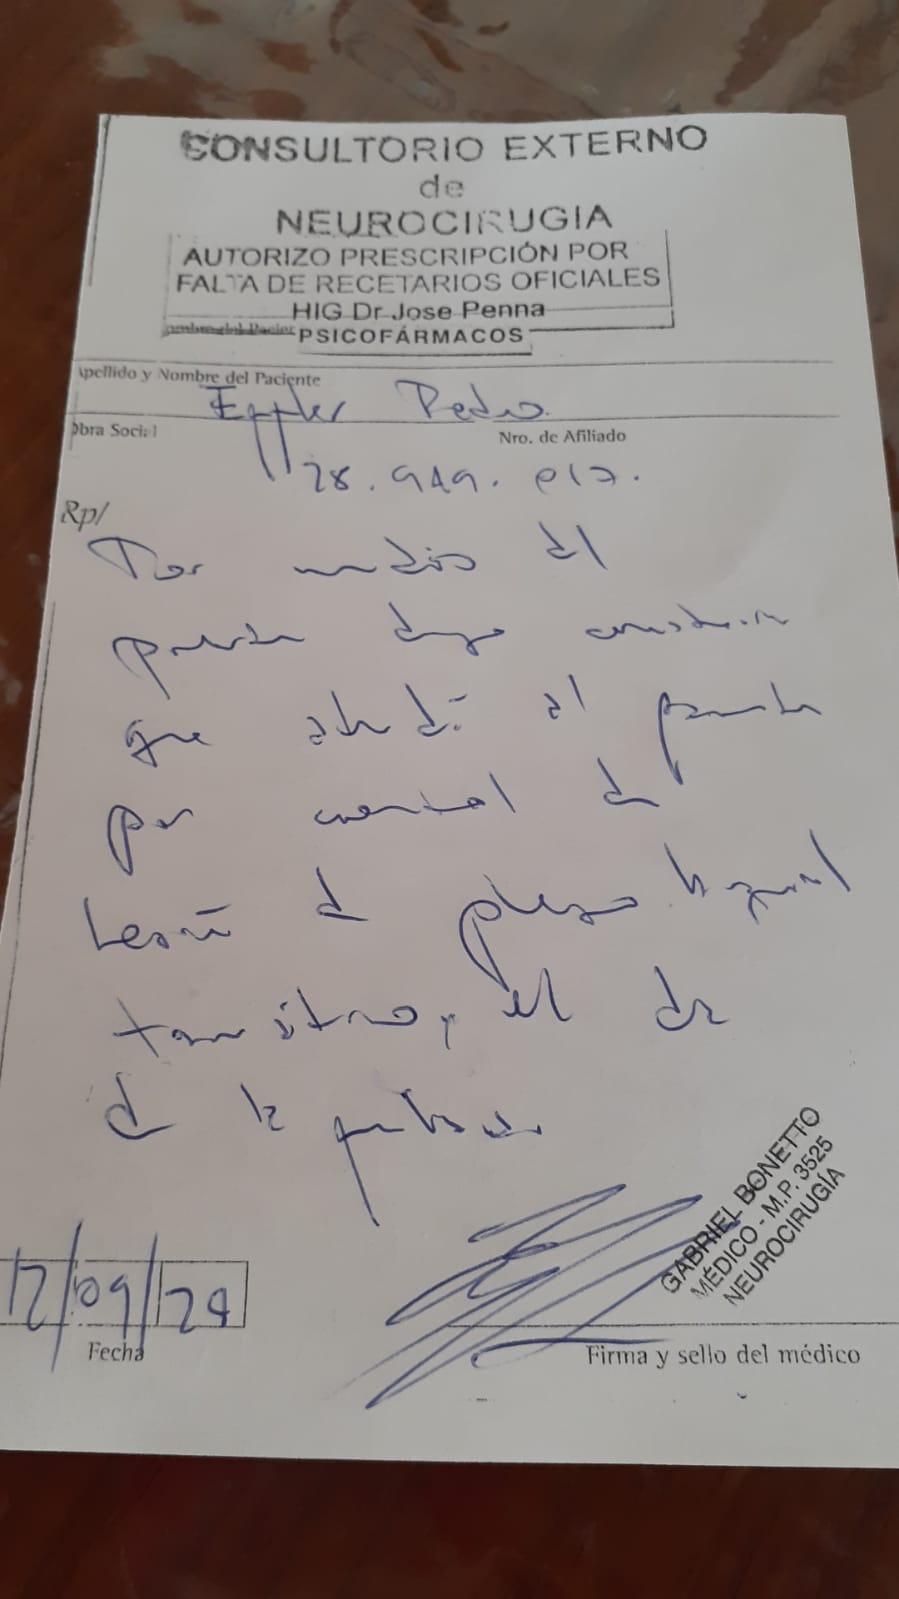 CONSULTORIO EXTERNO
de
NEUROCIRUGIA
AUTORIZO PRESCRIPCIÓN POR
FALTA DE RECETARIOS OFICIALES
HIG Dr Jose Penna
PSICOFÁRMACOS
Apellido y Nombre del Paciente
Eppler Pedro
Obra Social Nro. de Afiliado
28.949.
Rp/
Por medio del
presente dejo constancia
que atendí al paciente
por control de
lesión de plexo braquial
el día
de la
GABRIEL BONETTO
MÉDICO - M.P. 3525
NEUROCIRUGÍA
12/09/24
Fecha
Firma y sello del médico